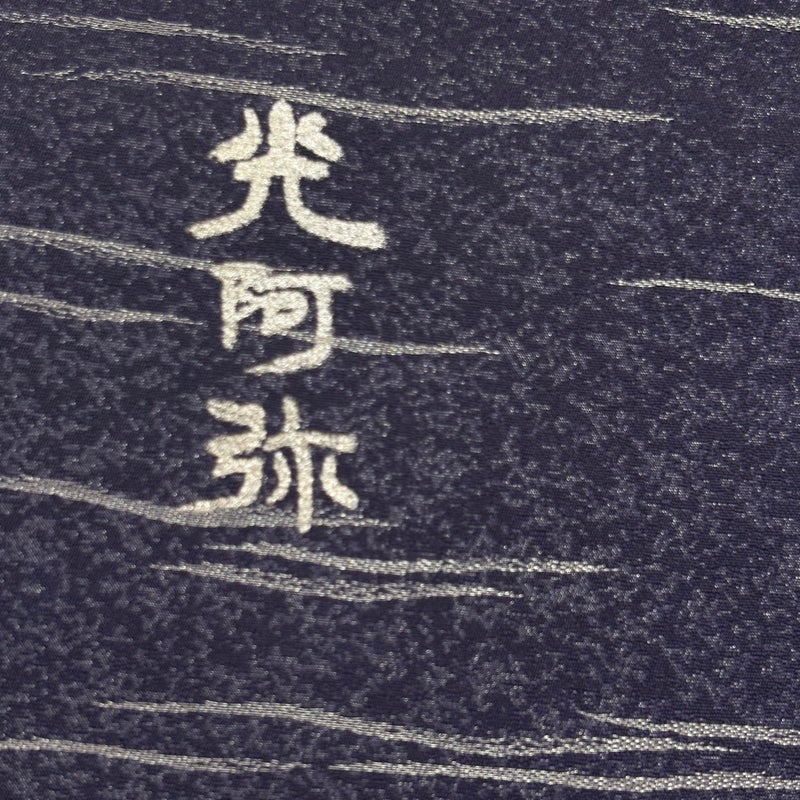 光阿弥